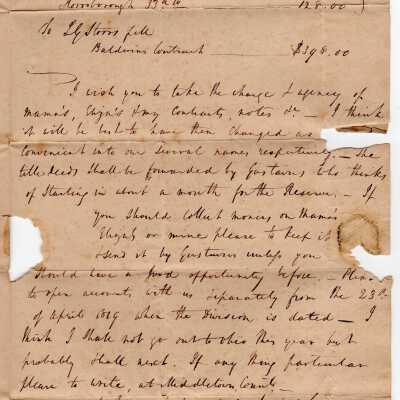 128.00
To
Baldwins Contract $398.00
I wish you to take the charge & agency of
Mama's, Eliza's & my Contracts, notes &c — I think
it will be best to have them changed as
convenient into our several names respectively. — The
title deeds shall be forwarded by Gustavus who thinks
of Starting in about a month for the Reserve. — If
you Should Collect monies on Mama's
Eliza's or mine please to keep it &
send it by Gustavus unless you
should have a good opportunity before. — Please
to open accounts with us separately from the 23d
of April 1819 when the Division is dated — I
think I shall not go out to ohio this year but
probably shall next. If any thing particular
please to write, at Middletown Connt. —